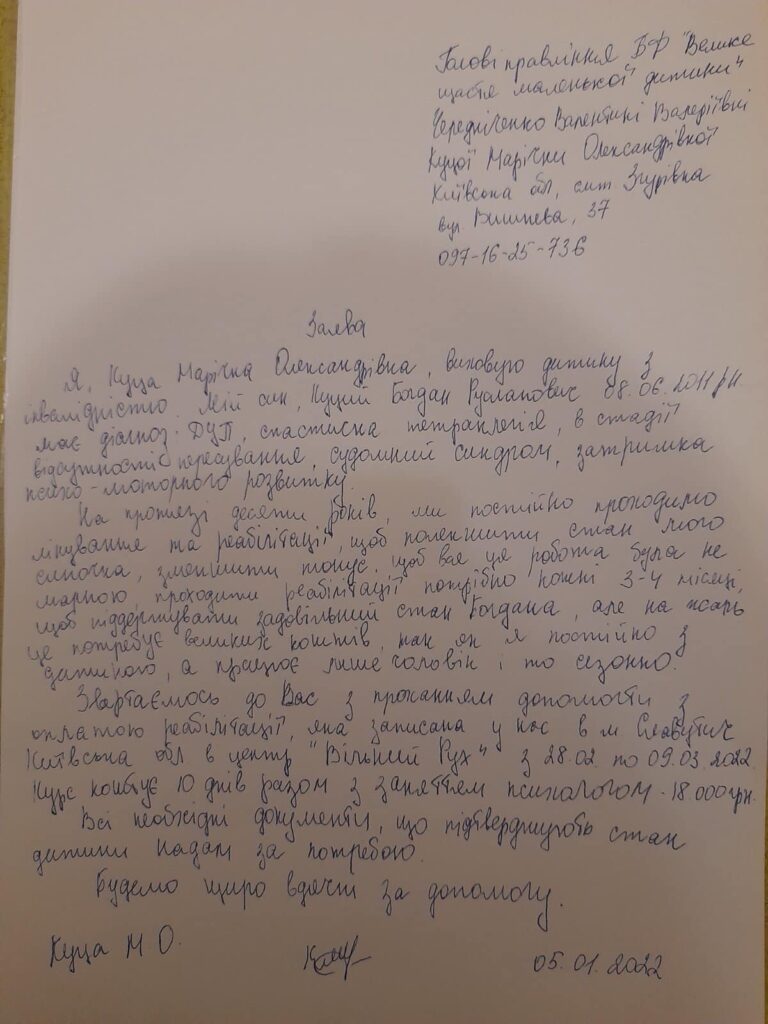 Голові правління БФ "Велике
щастя маленької дитини"
Чередніченко Валентині Валеріївні
Куцої Марічки Олександрівної
Київська обл, смт. Згурівка
вул Вишнева, 37
097-16-25-736
Заява
Я, Куца Марічка Олександрівна, виховую дитину з
інвалідністю. Мій син, Куций Богдан Русланович 08.06.2011 р.н.
має діагноз: ДЦП, спастисна тетраплегія, в стадії
відсутності пересування, судомний синдром, затримка
психо-моторного розвитку.
На протязі десяти років, ми постійно проходимо
лікування та реабілітації, щоб полекшити стан мого
синочка, зменшити тонус. щоб вся ця робота була не
марною, проходити реабілітації потрібно кожні 3-4 місяці,
щоб піддержувати задовільний стан Богдана, але на жаль
це потребує великих коштів, так як я постійно з
дитиною, а працює лише чоловік і то сезонно.
Звертаємось до Вас з проханням допомогти з
оплатою реабілітації, яка записана у нас в м Славутич
Київська обл в центр "Вільний Рух" з 28.02 по 09.03.2022.
Курс коштує 10 днів разом з заняттям психологом - 18 000 грн.
Всі необхідні документи, що підтверджують стан
дитини надам за потребою.
Будемо щиро вдячні за допомогу.
Куца М О.
05.01.2022